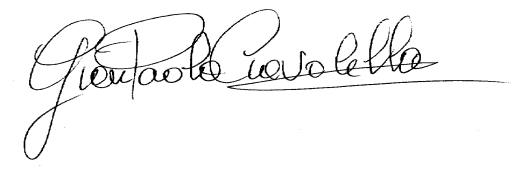 GianPaolo Cuevolella